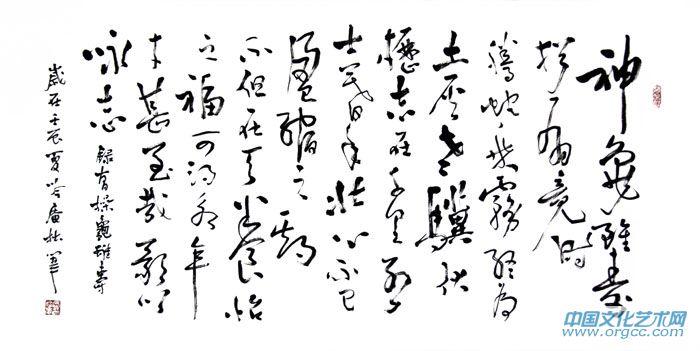 神龜雖壽
猶有竟时
騰蛇乘霧終為
土灰老驥伏
櫪志在千里烈
士暮年壯心不已
盈縮之期
不但在天養怡
之福可得永年
幸甚至哉歌以
咏志 錄曹操龜雖壽
歲在壬辰夏
中国文化艺术网
www.orgcc.com